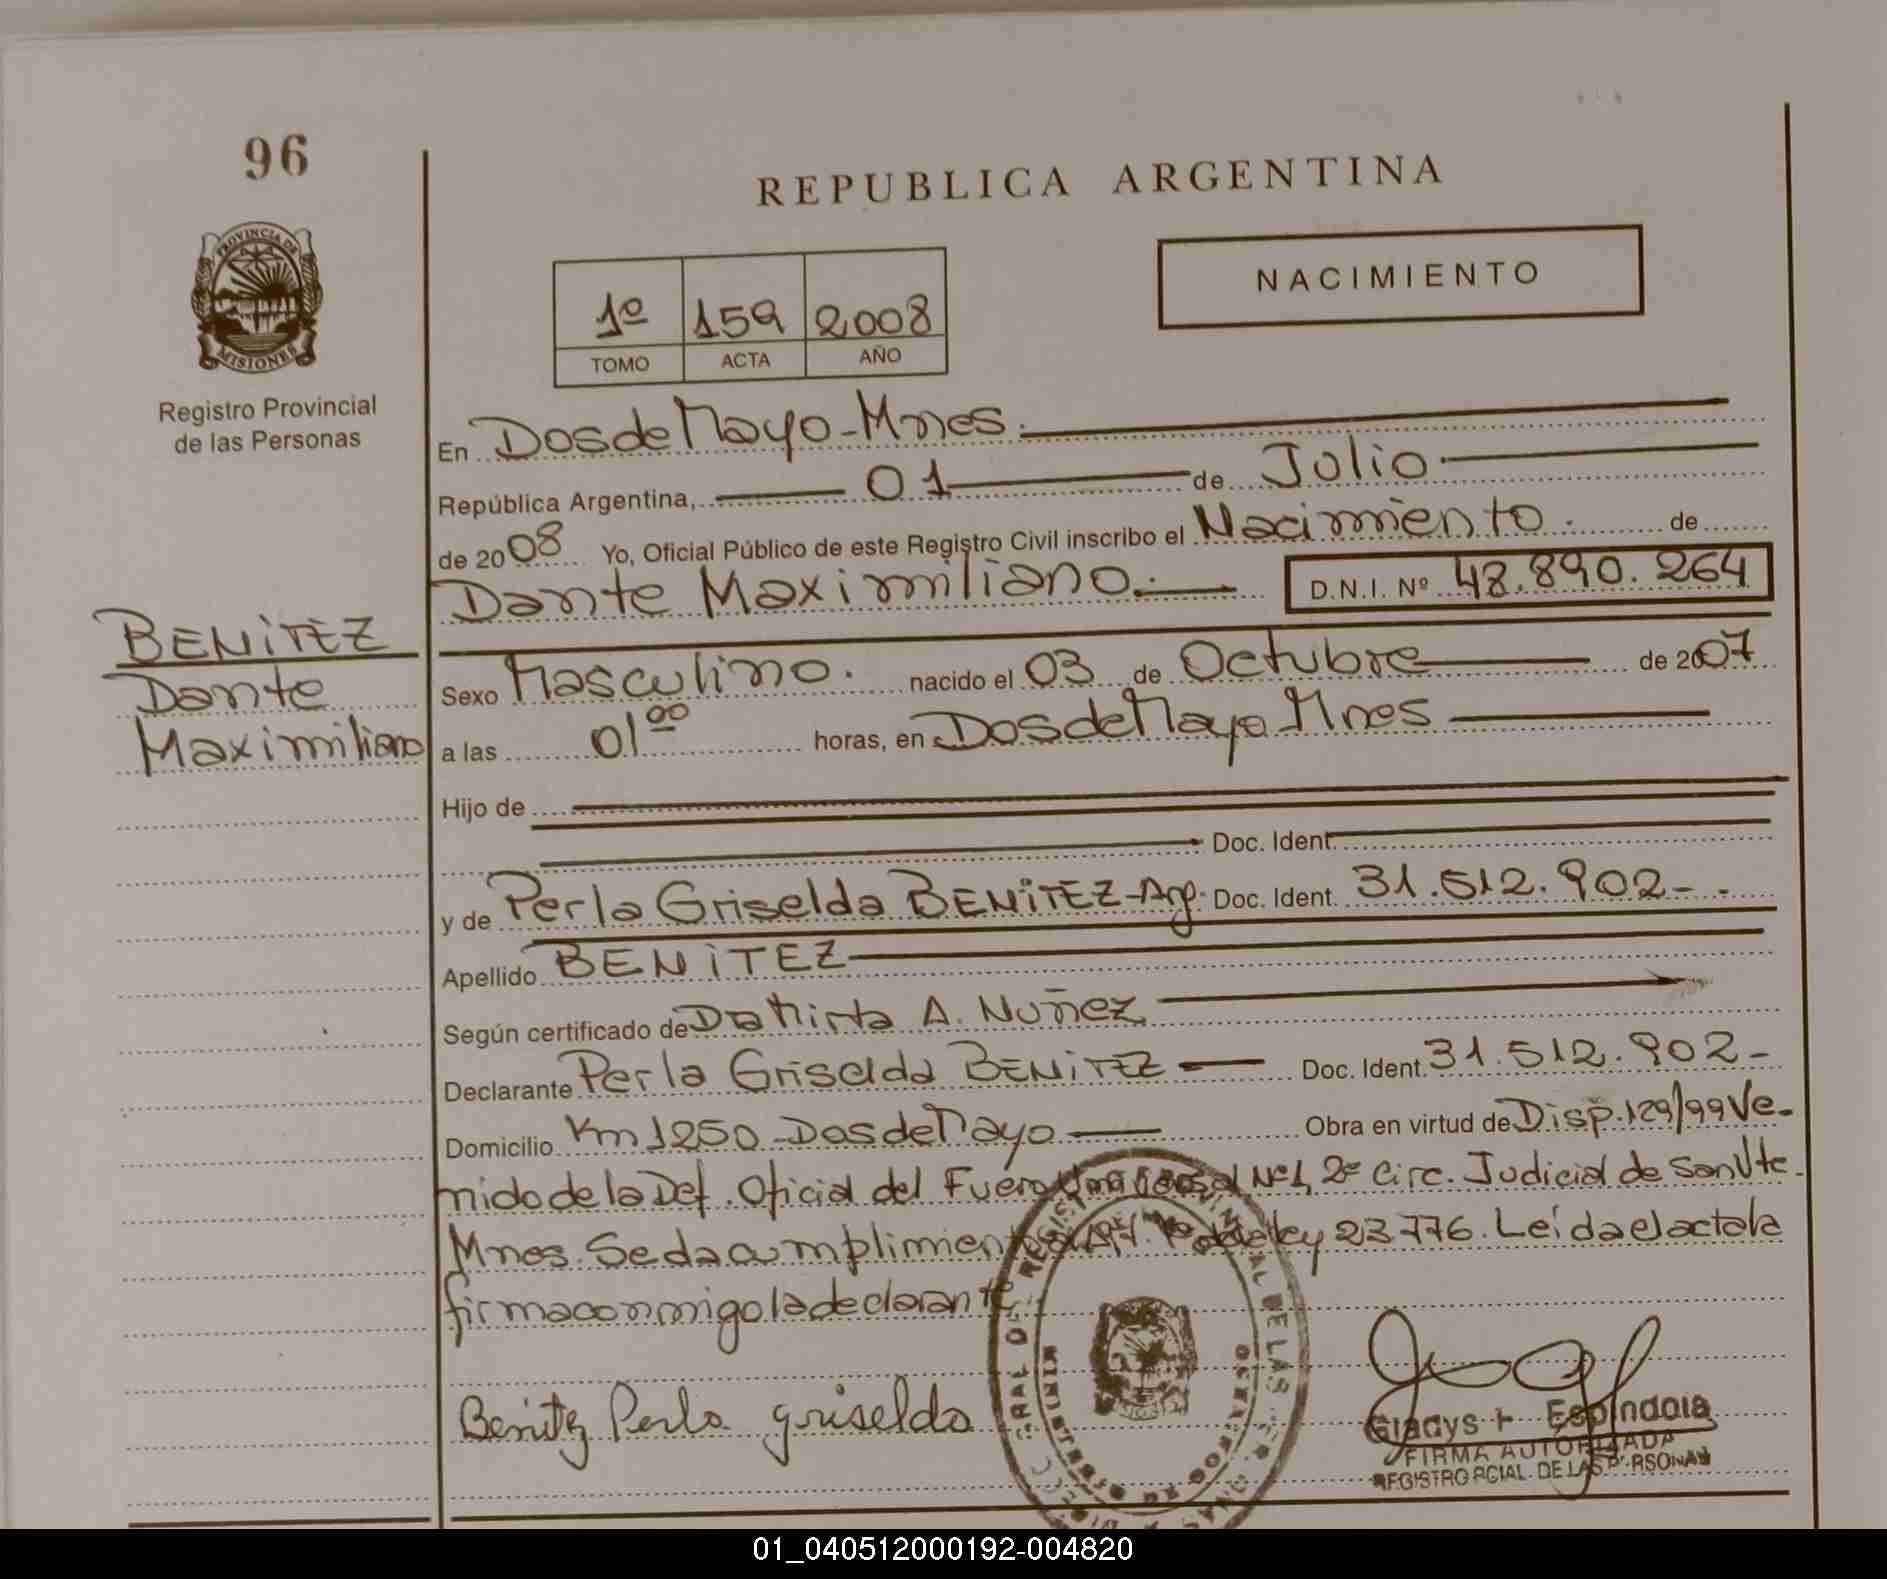 96
REPUBLICA ARGENTINA
PROVINCIA DE
MISIONES
Registro Provincial
de las Personas
NACIMIENTO
1º 159 2008
TOMO ACTA AÑO
En Dos de Mayo - Mnes.
República Argentina, 01 de Julio
de 2008 Yo, Oficial Público de este Registro Civil inscribo el Nacimiento. de
Dante Maximiliano. D.N.I. Nº 48.890.264
BENITEZ
Dante
Maximiliano
Sexo Masculino. nacido el 03 de Octubre de 2007
a las 01 00 horas, en Dos de Mayo Mnes
Hijo de
Doc. Ident.
y de Perla Griselda BENITEZ - Arg. Doc. Ident. 31.512.902-
Apellido BENITEZ
Según certificado de Dra Mirta A. Nuñez
Declarante Perla Griselda BENITEZ Doc. Ident. 31.512.902-
Domicilio Km 1250 - Dos de Mayo Obra en virtud de Disp. 129/99 Ve-
nido de la Def. Oficial del Fuero Universal Nº 1, 2º Circ. Judicial de San Vte.
Mnes. Se da cumplimiento Art. ley 23.776. Leída el acta la
firma conmigo la declarante
Benitez Perla griselda
Gladys Espíndola
FIRMA AUTORIZADA
REGISTRO PCIAL. DE LAS PERSONAS
01_040512000192-004820